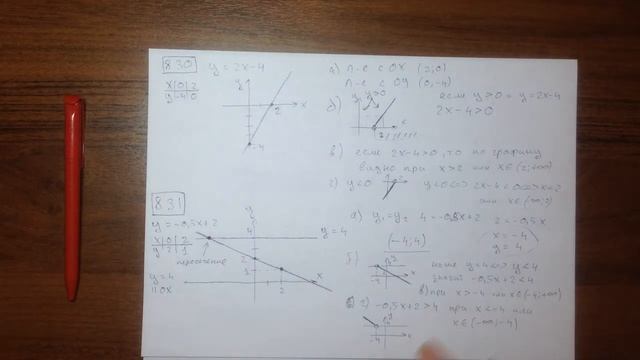 830 y = 2x-4
x | 0 | 2
y | -4 | 0
y
x
2
-4
а) п-е с OX (2;0)
п-е с OY (0;-4)
б) y>0
2
если y>0 = y=2x-4
2x-4>0
в) если 2x-4>0, то по графику
видно при x>2 или x∈(2;+∞)
г) y<0 y<0 <=> 2x-4<0 <=> x<2
или
831
y = -0,5x+2
x | 0 | 2
y | 2 | 1
пересечение
y=4
y
4
2
1
2
x
y=4
||OX
а) y₁=y₂ 4=-0,5x+2 2=-0,5x
x=-4
y=4
(-4;4)
б
ниже y=4 <=> y<4
значит -0,5x+2<4
в) при x>-4 или x∈(-4;+∞)
г) -0,5x+2>4 при x<-4 или
x∈(-∞;-4)
-4